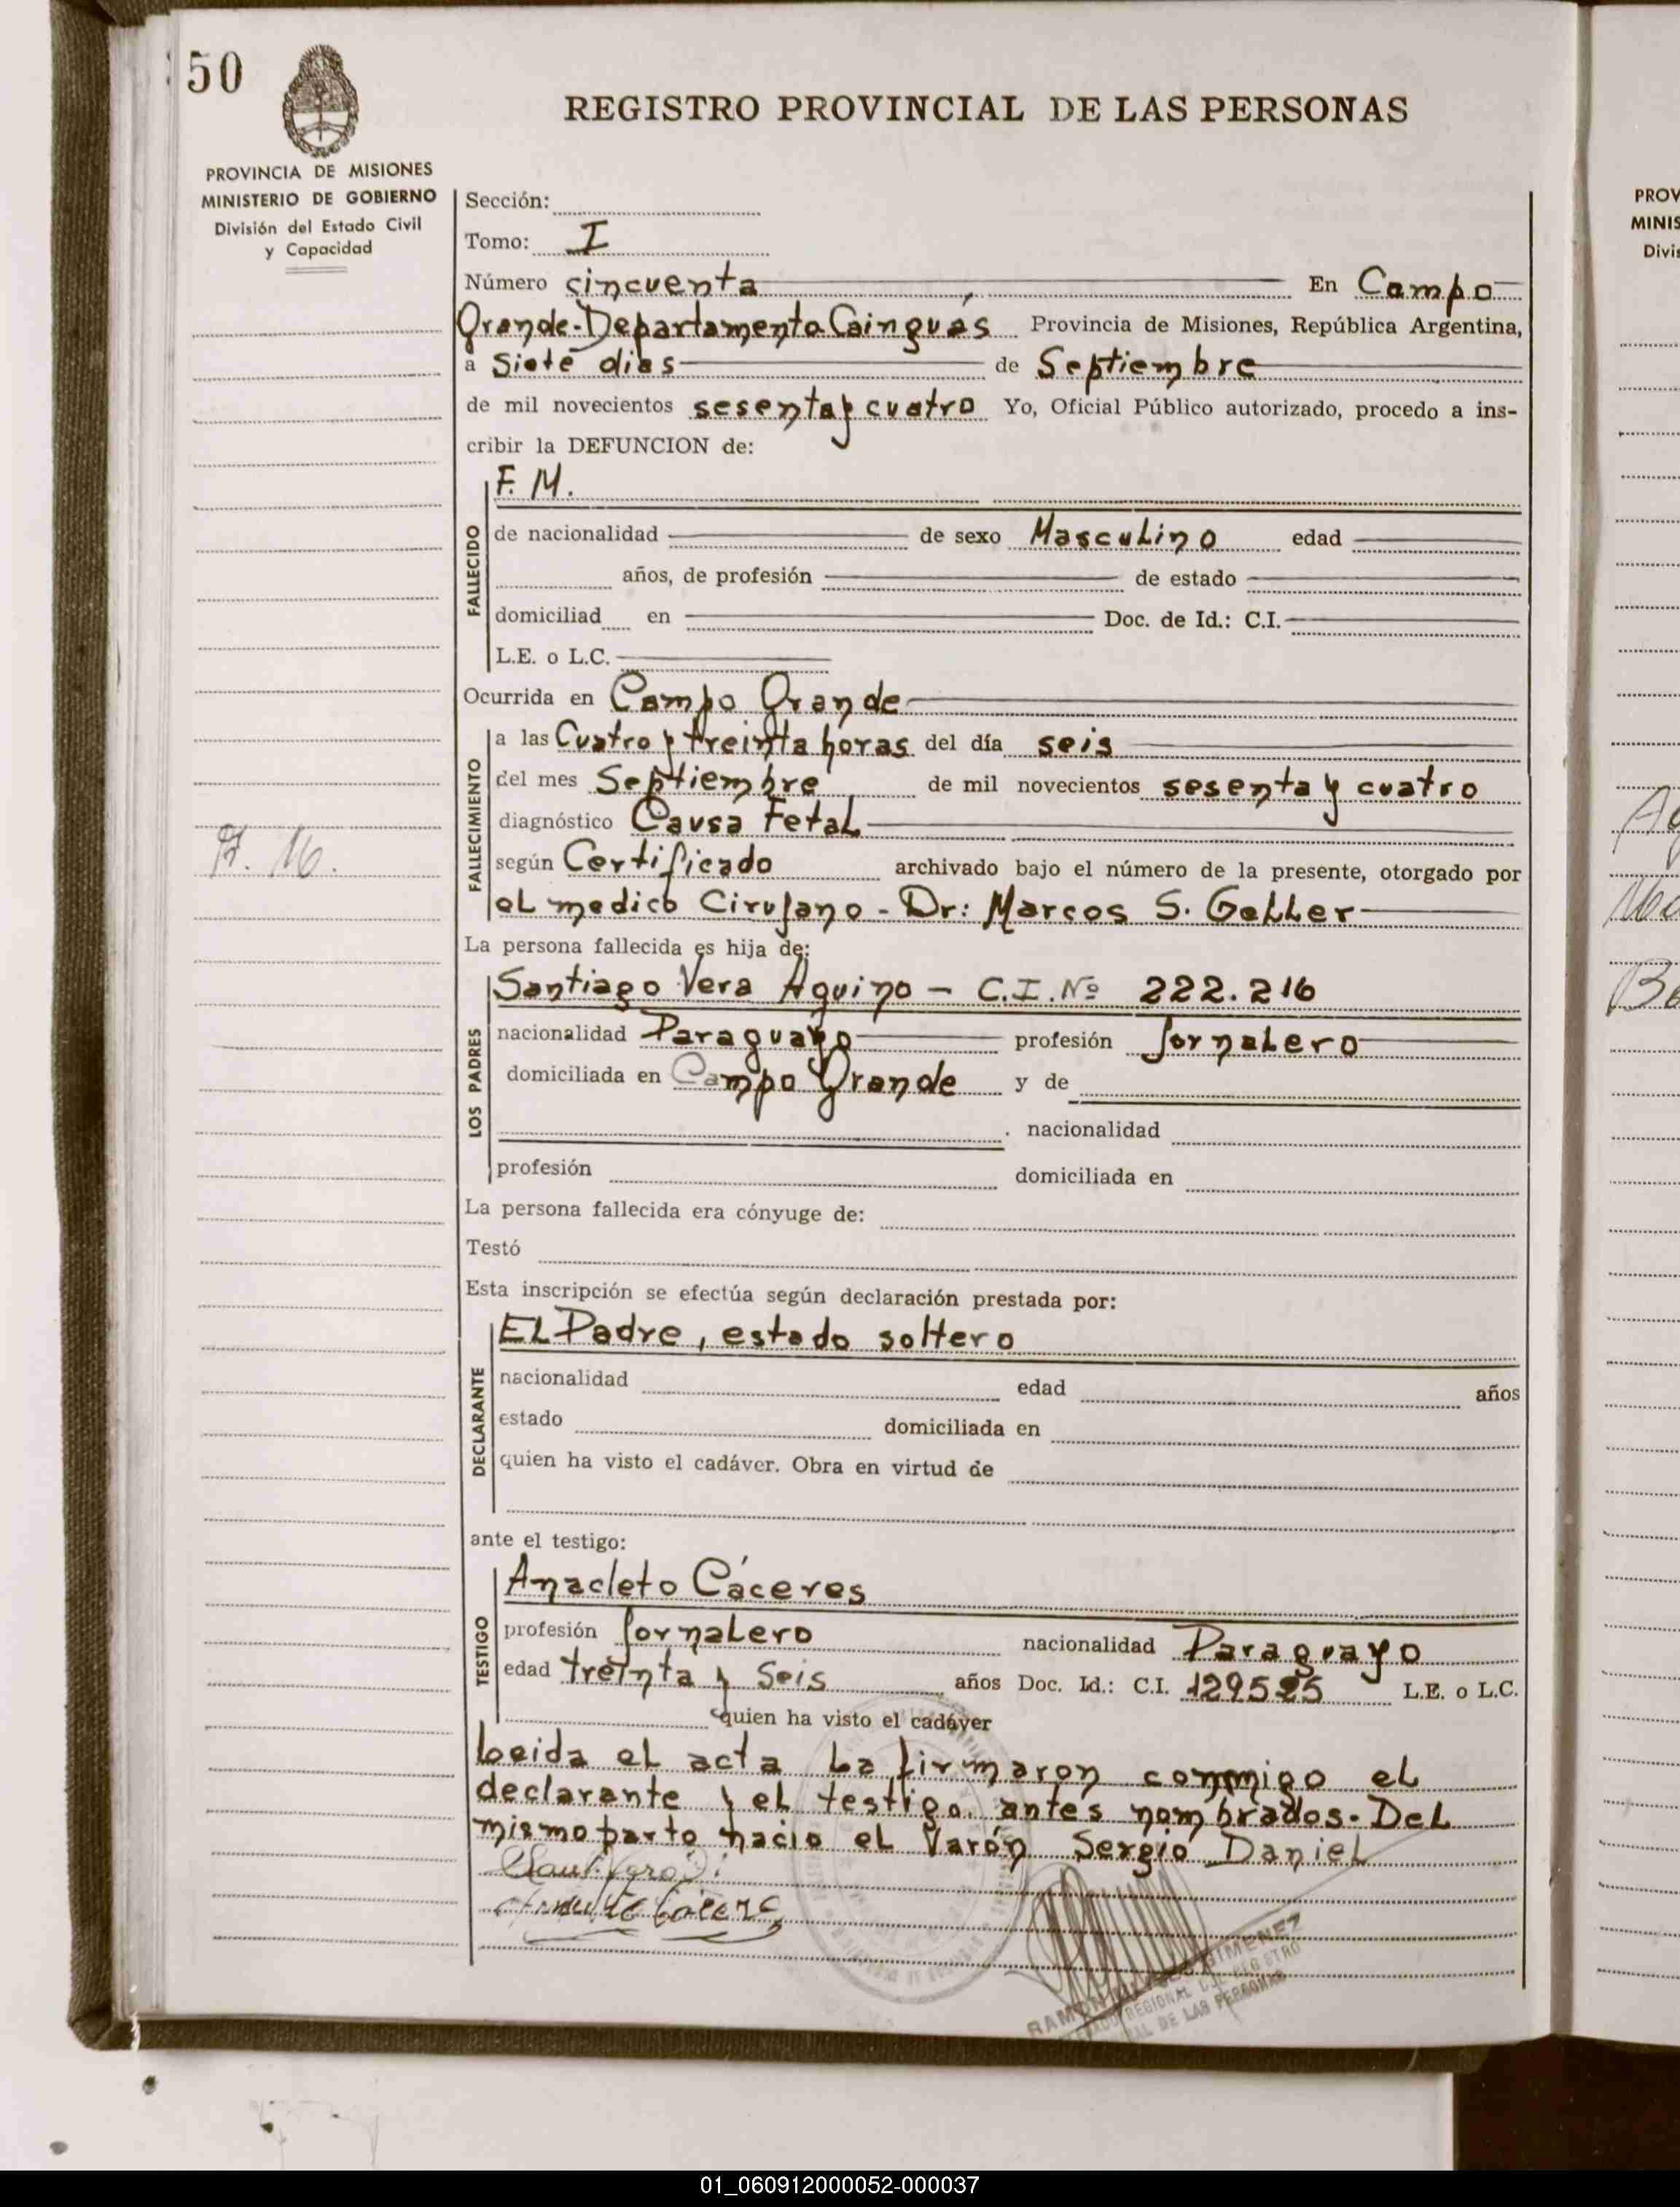 50
REGISTRO PROVINCIAL DE LAS PERSONAS
PROVINCIA DE MISIONES
MINISTERIO DE GOBIERNO
División del Estado Civil
y Capacidad
Sección:
Tomo: I
Número cincuenta En Campo
Grande-Departamento Cainguás Provincia de Misiones, República Argentina,
a Siete dias de Septiembre
de mil novecientos sesenta y cuatro Yo, Oficial Público autorizado, procedo a ins-
cribir la DEFUNCION de:
FALLECIDO
F. M.
de nacionalidad de sexo Masculino edad
años, de profesión de estado
domiciliad en Doc. de Id.: C.I.
L.E. o L.C.
Ocurrida en Campo Grande
FALLECIMIENTO
a las Cuatro y treinta horas del día seis
del mes Septiembre de mil novecientos sesenta y cuatro
diagnóstico Causa Fetal
F. M.
según Certificado archivado bajo el número de la presente, otorgado por
el medico Cirujano - Dr: Marcos S. Geller
La persona fallecida es hija de:
LOS PADRES
Santiago Vera Aquino - C.I. Nº 222.216
nacionalidad Paraguayo profesión Jornalero
domiciliada en Campo Grande y de
nacionalidad
profesión domiciliada en
La persona fallecida era cónyuge de:
Testó
Esta inscripción se efectúa según declaración prestada por:
DECLARANTE
El Padre, estado soltero
nacionalidad edad años
estado domiciliada en
quien ha visto el cadáver. Obra en virtud de
ante el testigo:
TESTIGO
Anacleto Cáceres
profesión Jornalero nacionalidad Paraguayo
edad treinta y Seis años Doc. Id.: C.I. 129525 L.E. o L.C.
quien ha visto el cadáver
Leida el acta La firmaron conmigo el
declarante y el testigo antes nombrados. Del
mismo parto nacio el Varón Sergio Daniel
RAMON GIMENEZ
REGIONAL DEL REGISTRO
DE LAS PERSONAS
PROV
MINIS
Divis
01_060912000052-000037